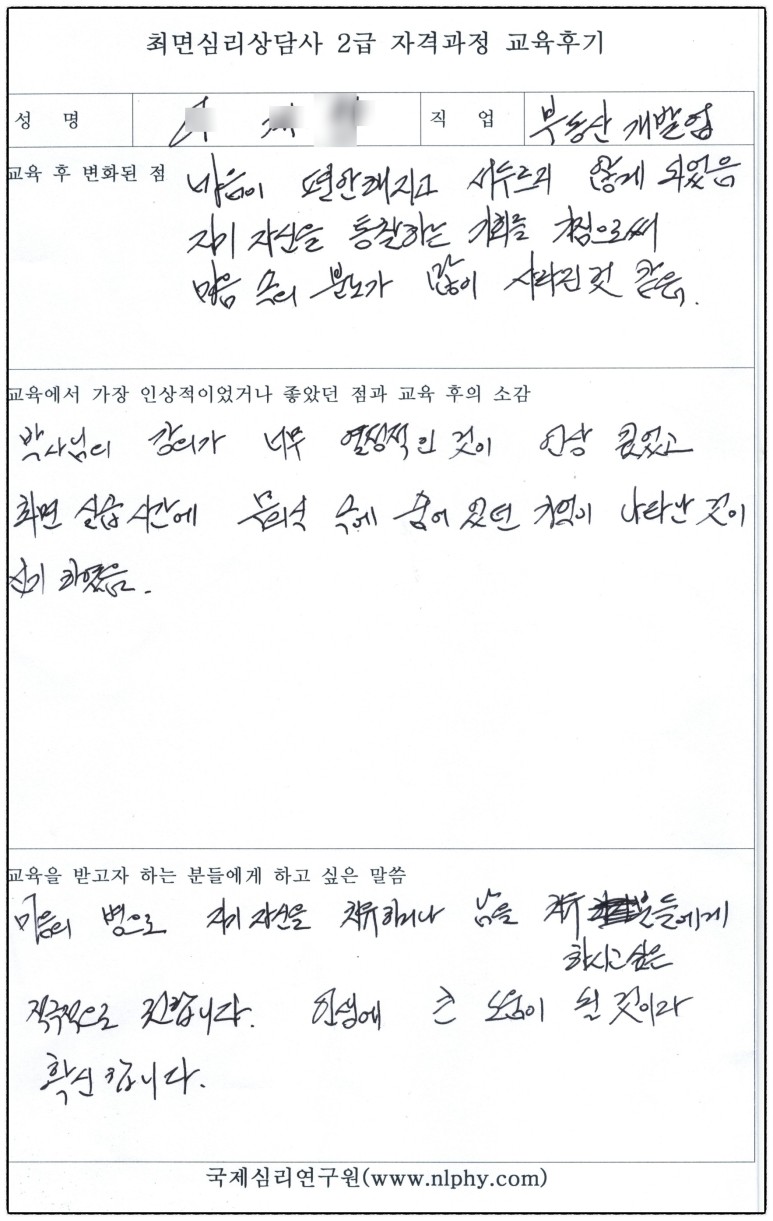 최면심리상담사 2급 자격과정 교육후기
성 명
직 업 부동산 개발업
교육 후 변화된 점
마음이 편안해지고 서두르지 않게 되었음
자기 자신을 통찰하는 기회를 가짐으로써
마음 속의 분노가 많이 사라진 것 같음.
교육에서 가장 인상적이었거나 좋았던 점과 교육 후의 소감
박사님의 강의가 너무 열정적인 것이 인상 깊었고
최면 실습 시간에 무의식 속에 숨어 있던 기억이 나타난 것이
신기 하였음.
교육을 받고자 하는 분들에게 하고 싶은 말씀
마음의 병으로 자기 자신을 치유하거나 남을 치유 분들에게
하시고 싶은
적극적으로 권합니다. 인생에 큰 도움이 될 것이라
확신합니다.
국제심리연구원(www.nlphy.com)